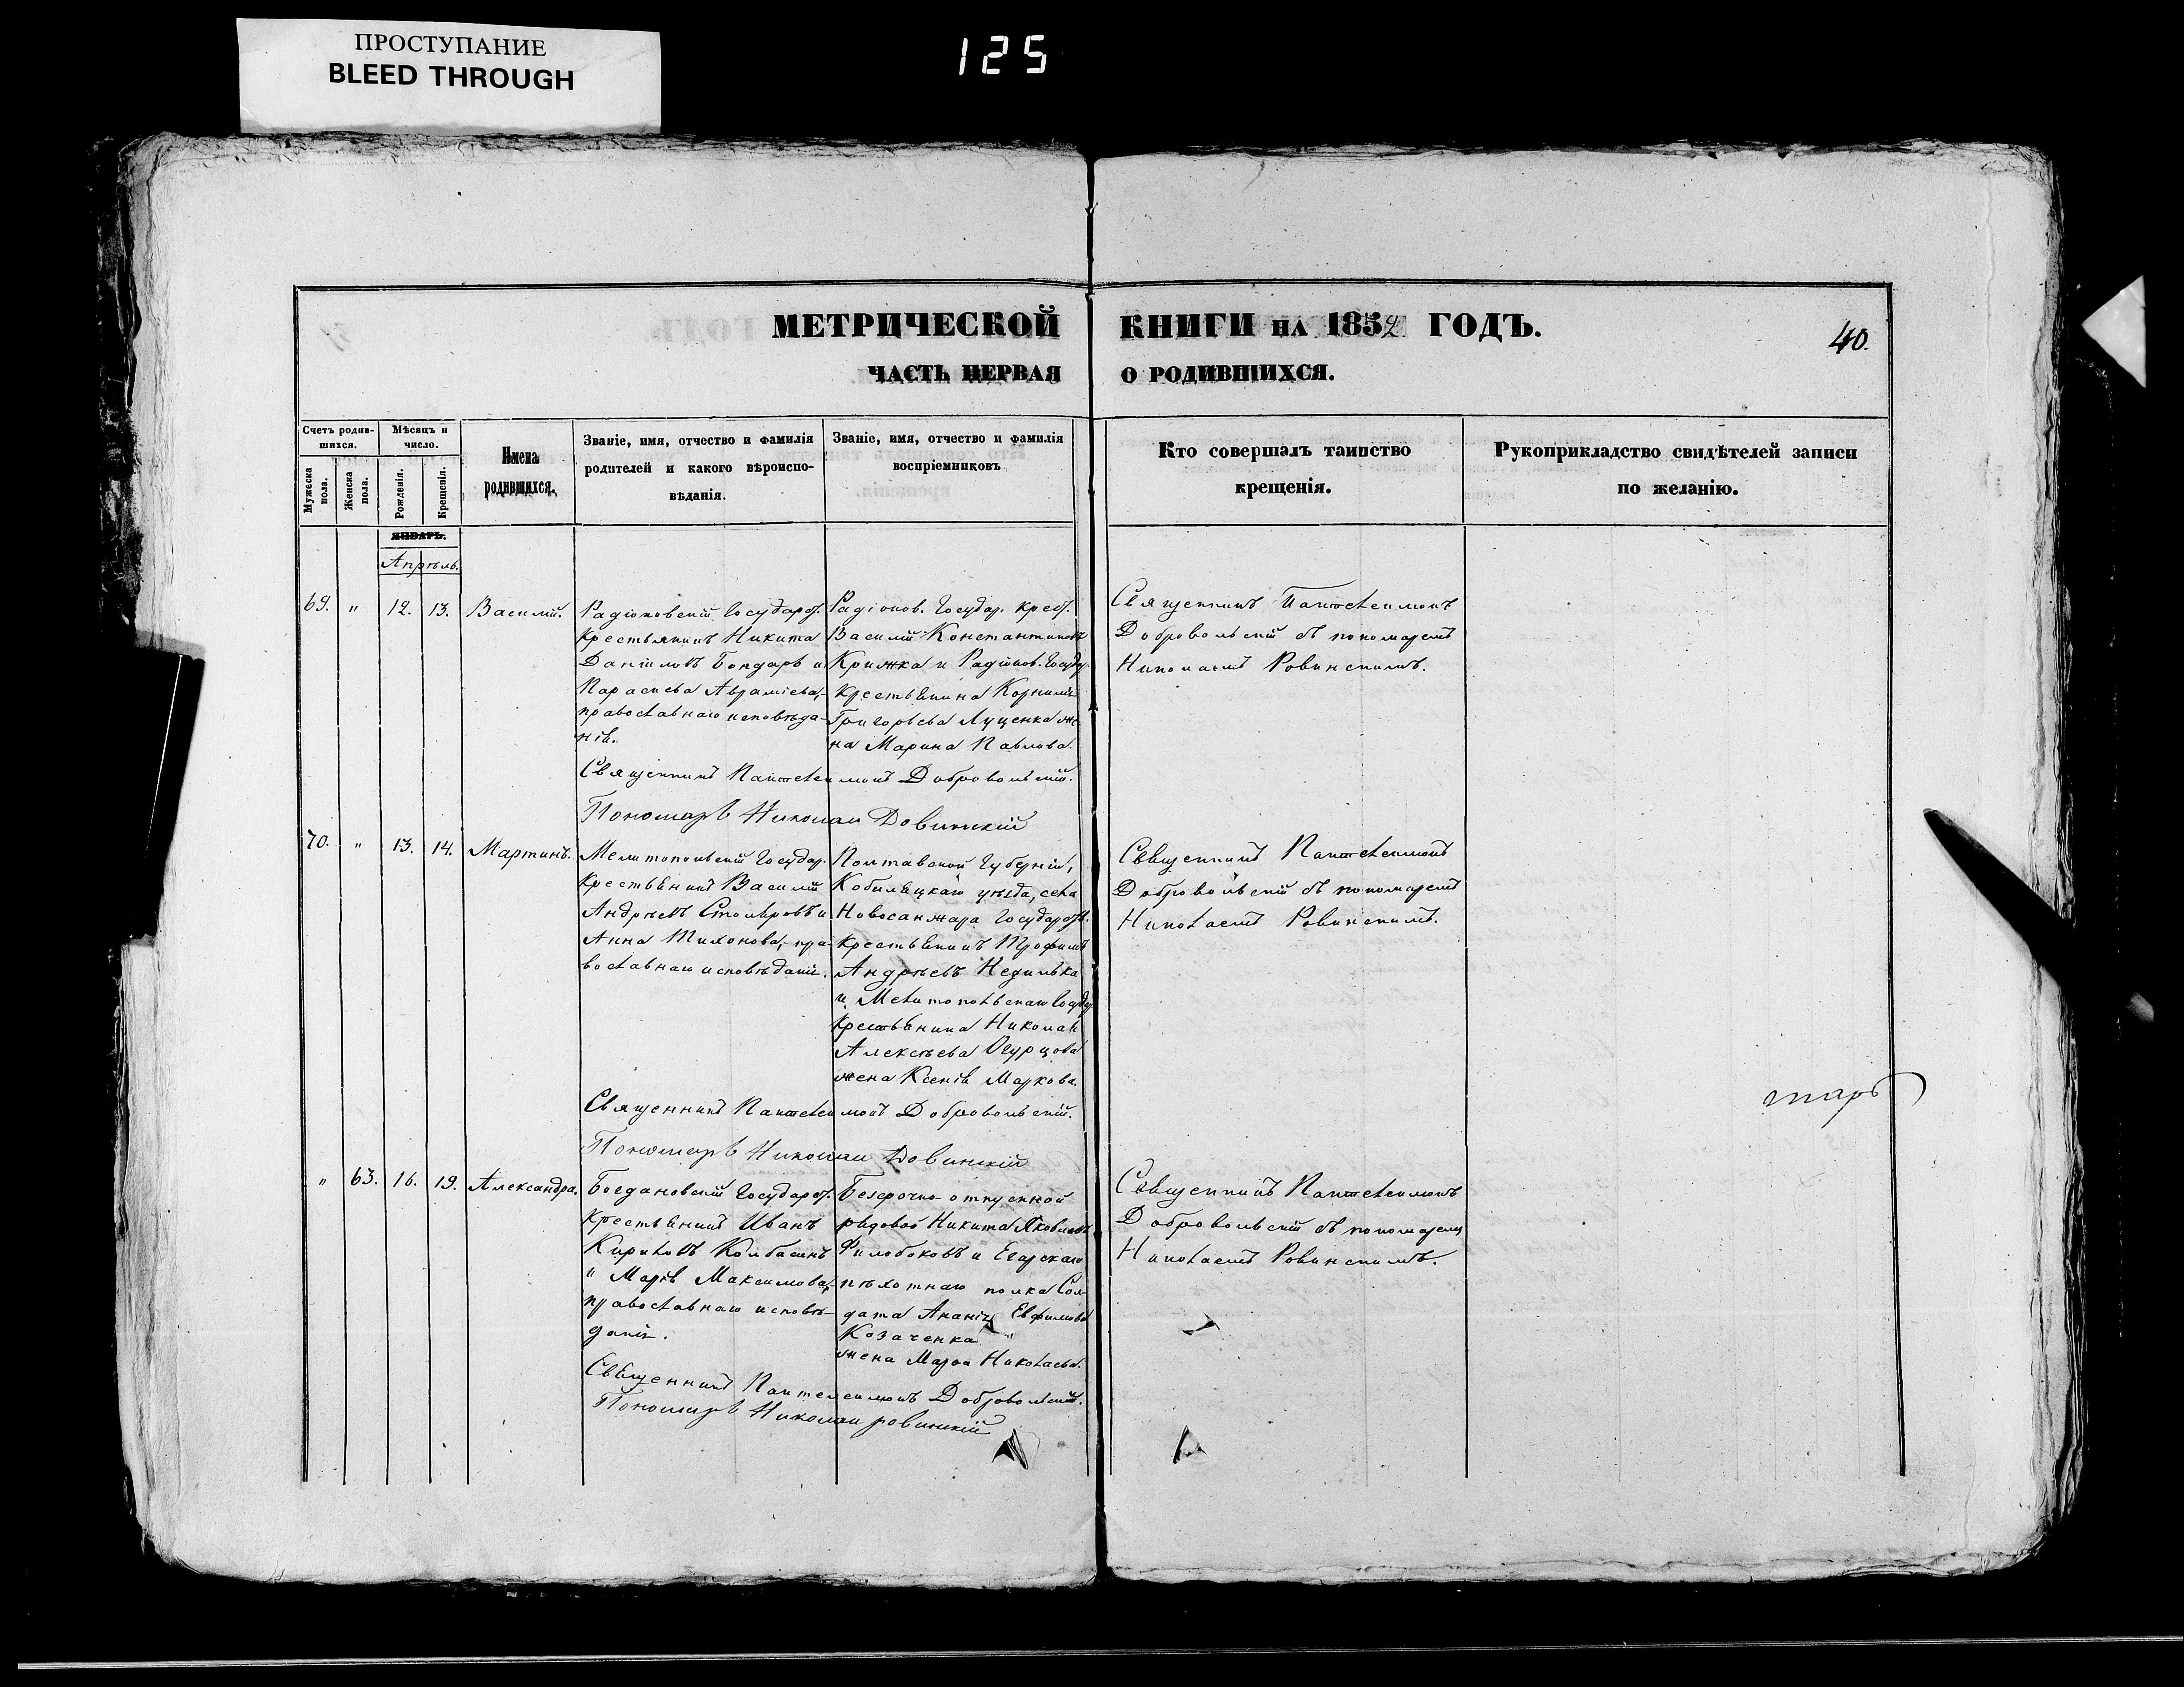 ПРОСТУПАНИЕ
BLEED THROUGH
125
МЕТРИЧЕСКОЙ КНИГИ НА 1852 ГОДЪ.
40.
ЧАСТЬ ПЕРВАЯ О РОДИВШИХСЯ.
Счетъ родив-
шихся.
Мужеска пола.
Женска пола.
Мѣсяцъ и
число.
Рожденія.
Крещенія.
Имена
родившихся.
Званіе, имя, отчество и фамилія
родителей и какого вѣроиспо-
вѣданія.
Званіе, имя, отчество и фамилія
воспріемниковъ
Кто совершалъ таинство
крещенія.
Рукоприкладство свидѣтелей записи
по желанію.
ЯНВАРЬ.
Апрѣль.
69. " 12. 13. Василій.
Радіоновскій Государст.
крестьянинъ Никита
Даніиловъ Бондарь и
Параскева Авраміева,
православнаго исповѣда-
нія.
Радіонов. Государ. крест.
Василій Константиновъ
Крижка и Радіонов. Государ.
крестьянина Корнилія
Григорьева Луценка же-
на Марина Павлова.
Священникъ Пантелеимонъ
Добровольскій съ пономаремъ
Николаемъ Ровинскимъ.
Священникъ Пантелеимонъ Добровольскій.
Пономарь Николай Ровинскій
70. " 13. 14. Мартинъ.
Мелитопольскій Государ.
крестьянинъ Василій
Андреевъ Столяровъ и
Анна Тихонова, пра-
вославнаго исповѣданія.
Полтавской Губерніи,
Кобиляцкаго уѣзда, села
Новосанжара Государств.
крестьянинъ Трофимъ
Андреевъ Недилька
и Мелитопольскаго Государ.
крестьянина Николая
Алексѣева Огурцова
жена Ксенія Маркова.
Священникъ Пантелеимонъ
Добровольскій съ пономаремъ
Николаемъ Ровинскимъ.
Священникъ Пантелеимонъ Добровольскій.
тарь
Пономарь Николай Ровинскій
" 63. 16. 19. Александра.
Богдановскій Государст.
крестьянинъ Иванъ
Кириловъ Колбасинъ
и Марія Максимова,
православнаго исповѣ-
данія.
Безсрочно-отпускной
рядовой Никита Яковлевъ
Филобоковъ и Егарскаго
пѣхотнаго полка Сол-
дата Ананія Евфимова
Козаченка
жена Марфа Николаева.
Священникъ Пантелеимонъ
Добровольскій съ пономаремъ
Николаемъ Ровинскимъ.
Священникъ Пантелеимонъ Добровольскій.
Пономарь Николай Ровинскій